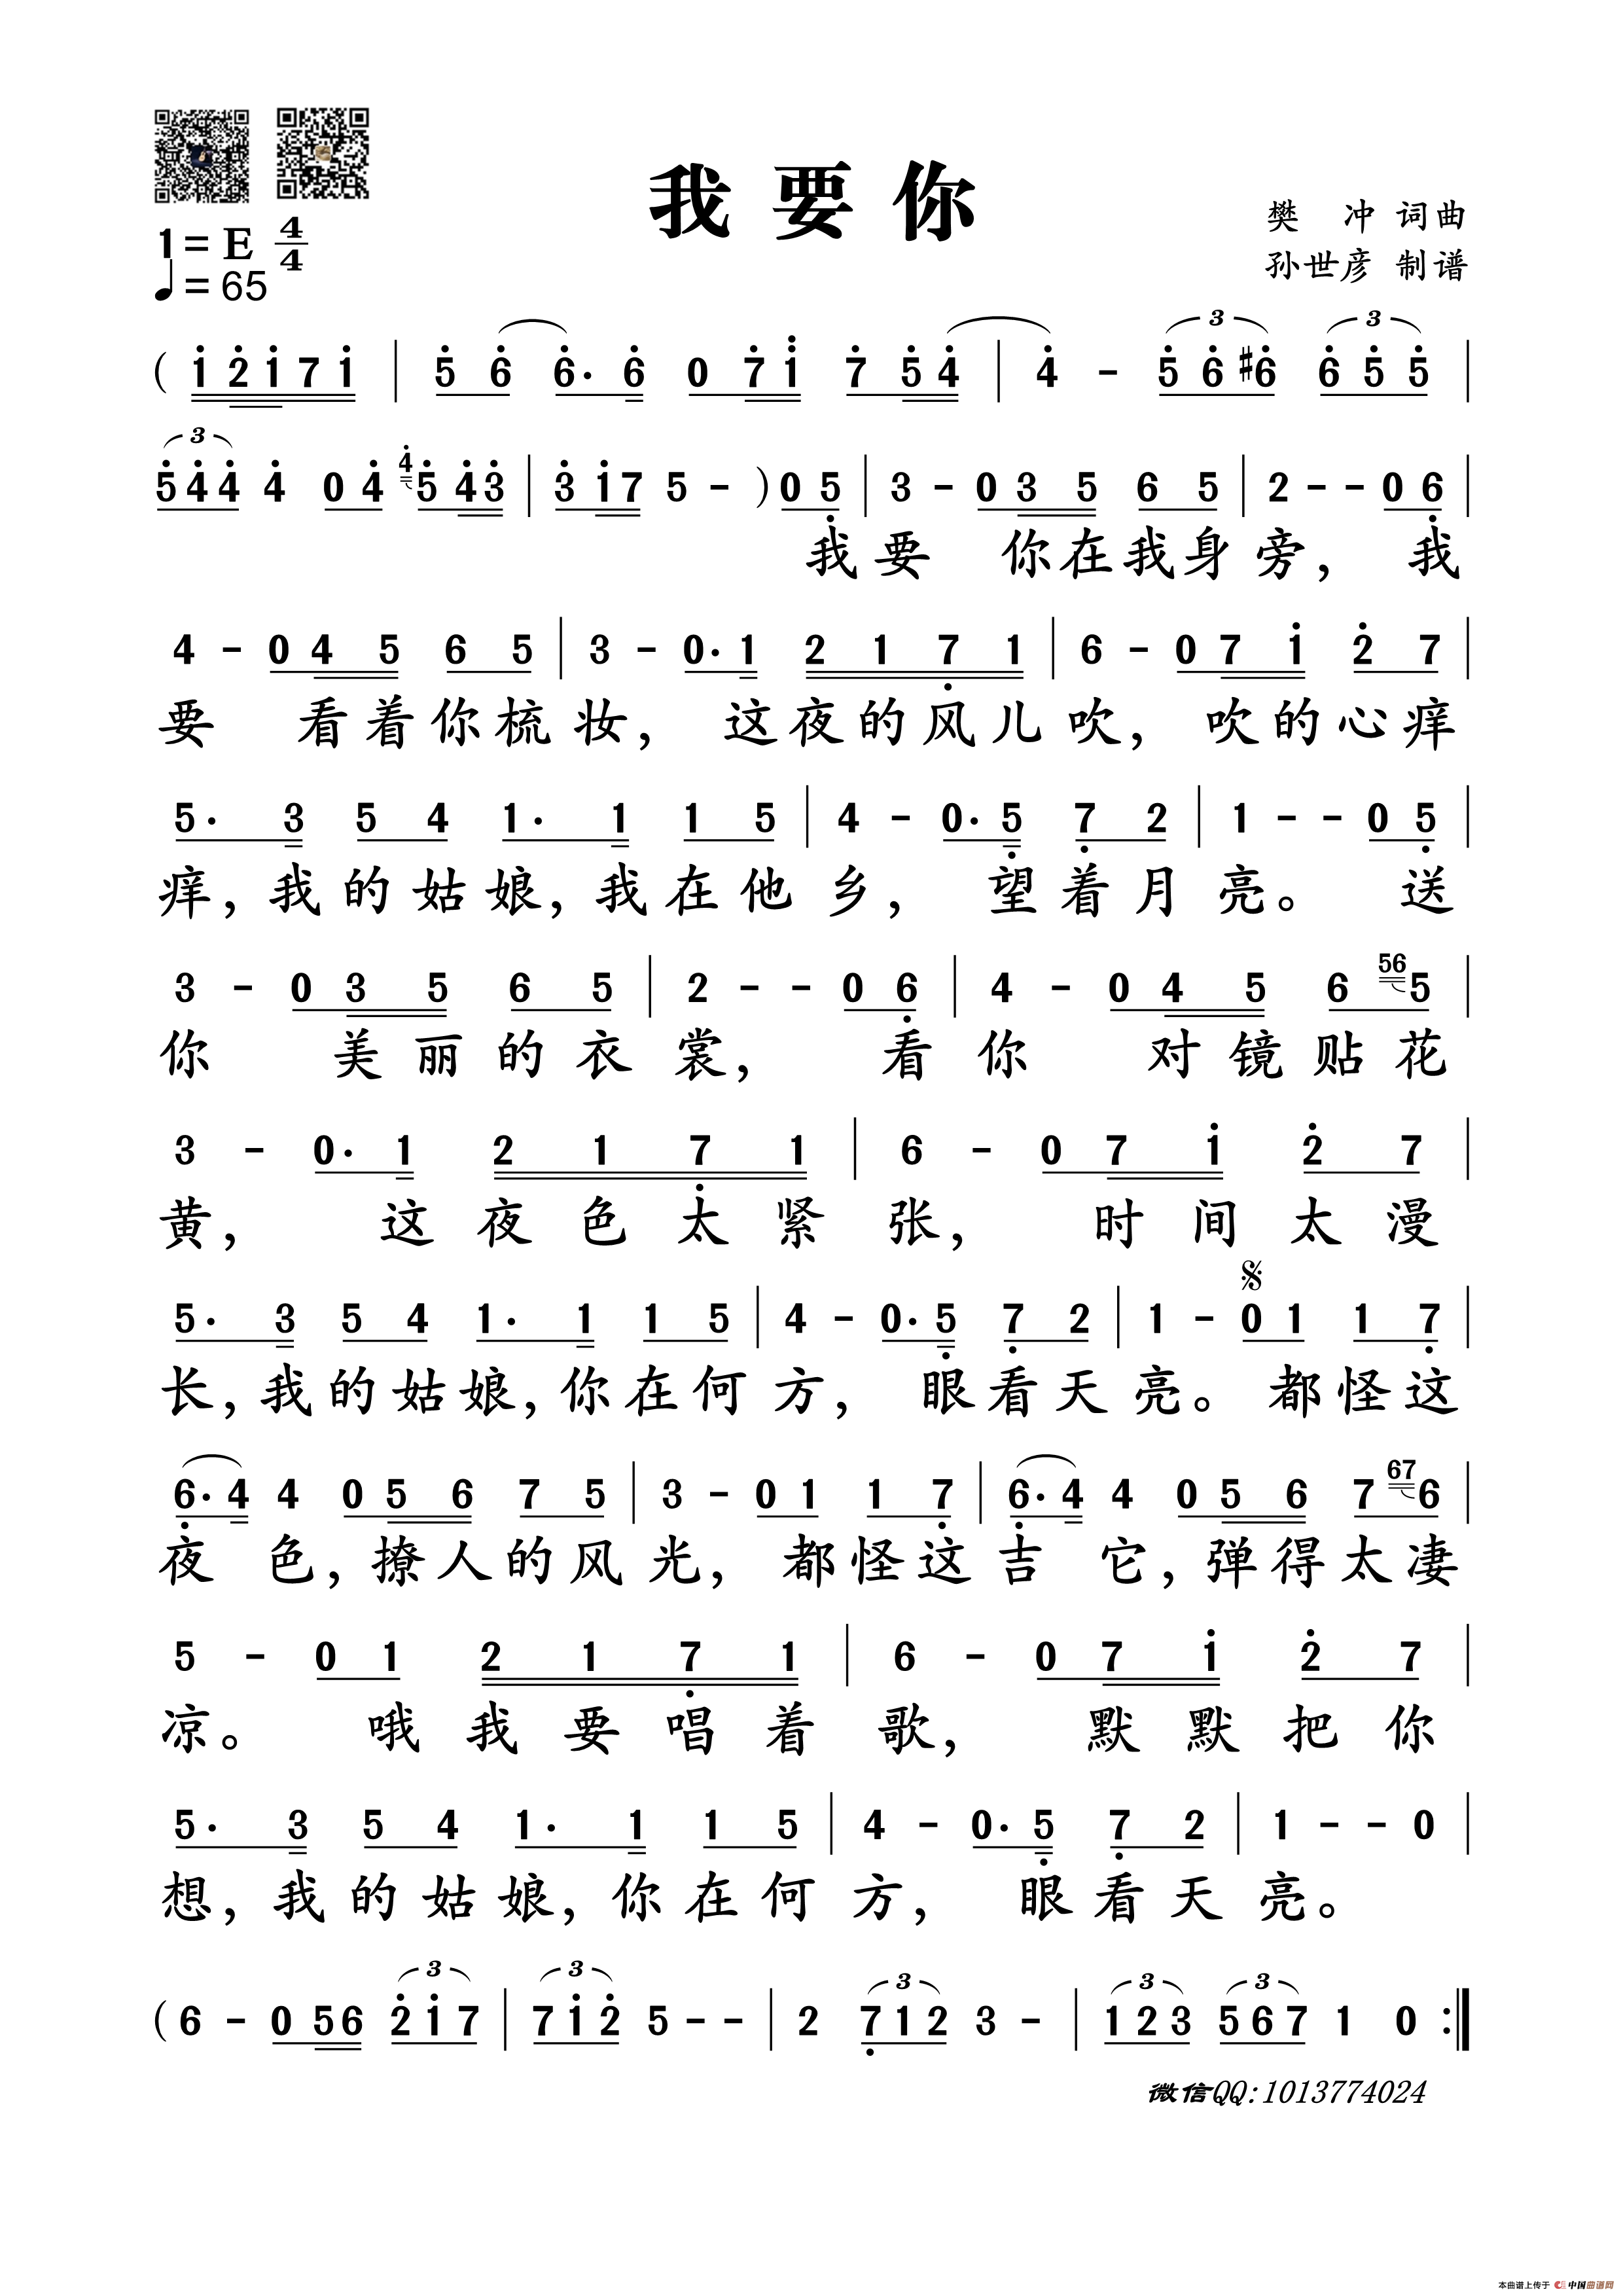 我要你
樊 冲 词曲
孙世彦 制谱
1=E 4/4
♩=65
( 1̇ 2̇ 1̇ 7 1̇ | 5̇ 6̇ 6̇· 6̇ 0 7̇ 1̈ 7̇ 5̇ 4̇ | 4̇ - 5̇ 6̇ #6̇ 6̇ 5̇ 5̇ |
5̇ 4̇ 4̇ 4̇ 0 4̇ 4̇ 5̇ 4̇ 3̇ | 3̇ 1̇ 7 5 - ) 0 5̣ | 3 - 0 3 5 6 5 | 2 - - 0 6̣ |
我要 你在我身旁， 我
4 - 0 4 5 6 5 | 3 - 0· 1 2 1 7̣ 1 | 6 - 0 7 1̇ 2̇ 7 |
要 看着你梳妆， 这夜的风儿吹， 吹的心痒
5· 3 5 4 1· 1 1 5 | 4 - 0· 5̣ 7̣ 2 | 1 - - 0 5̣ |
痒，我的姑娘，我在他乡， 望着月亮。 送
3 - 0 3 5 6 5 | 2 - - 0 6̣ | 4 - 0 4 5 6 56 5 |
你 美丽的衣裳， 看你 对镜贴花
3 - 0· 1 2 1 7̣ 1 | 6 - 0 7 1̇ 2̇ 7 |
黄， 这夜色太紧张， 时间太漫
5· 3 5 4 1· 1 1 5 | 4 - 0· 5̣ 7̣ 2 | 1 - 𝄋 0 1 1 7̣ |
长，我的姑娘，你在何方， 眼看天亮。 都怪这
6̣· 4 4 0 5 6 7 5 | 3 - 0 1 1 7̣ | 6̣· 4 4 0 5 6 7 67 6 |
夜 色，撩人的风光， 都怪这吉 它，弹得太凄
5 - 0 1 2 1 7̣ 1 | 6 - 0 7 1̇ 2̇ 7 |
凉。 哦我要唱着歌， 默默把你
5· 3 5 4 1· 1 1 5 | 4 - 0· 5̣ 7̣ 2 | 1 - - 0 |
想，我的姑娘，你在何方， 眼看天亮。
( 6 - 0 5 6 2̇ 1̇ 7 | 7 1̇ 2̇ 5 - - | 2 7̣ 1 2 3 - | 1 2 3 5 6 7 1 0 :‖
微信QQ:1013774024
本曲谱上传于 中国曲谱网